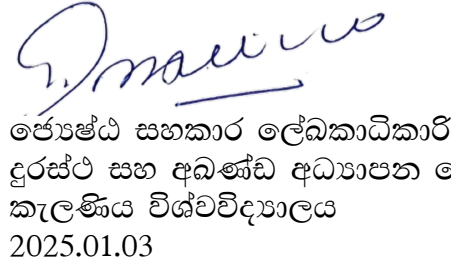 ජ්‍යෙෂ්ඨ සහකාර ලේඛකාධිකාරි
දුරස්ථ සහ අඛණ්ඩ අධ්‍යාපන
කැලණිය විශ්වවිද්‍යාලය
2025.01.03